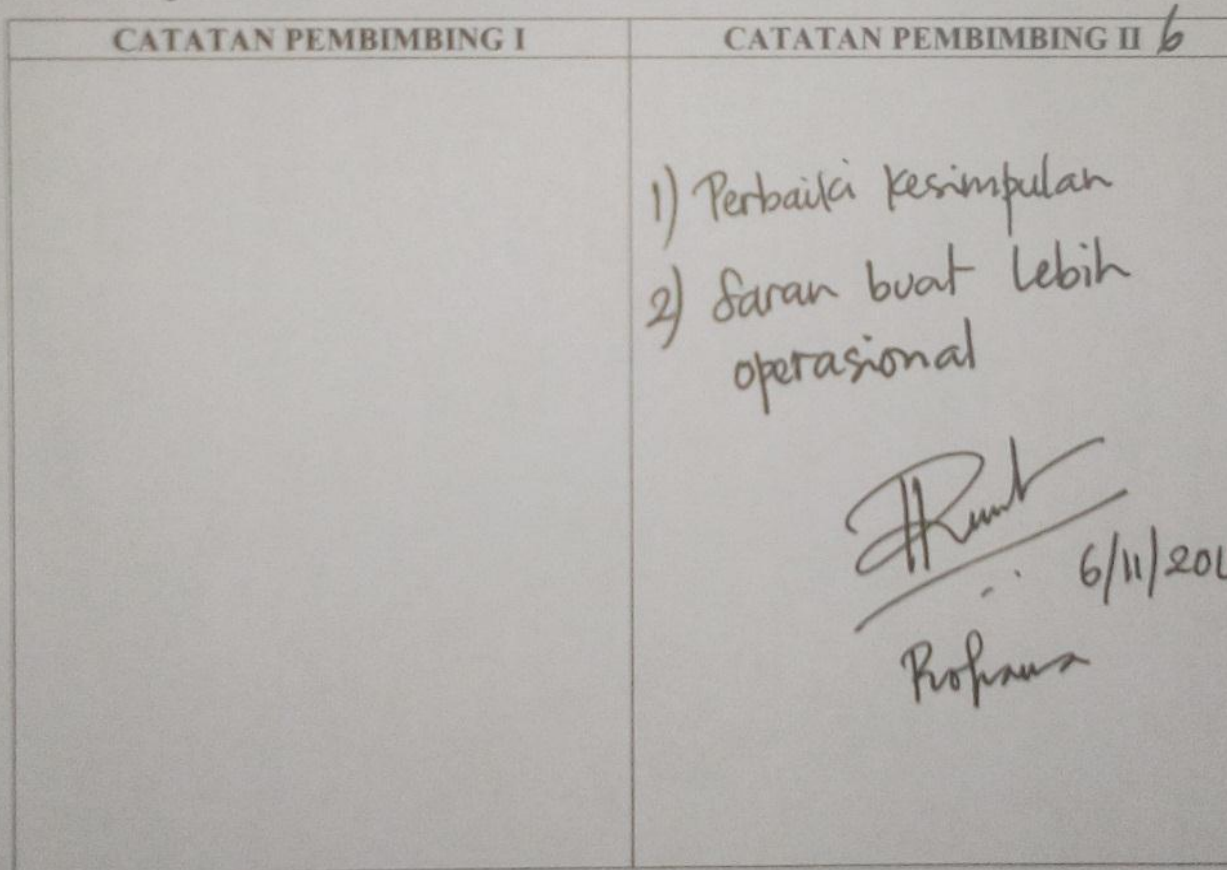 CATATAN PEMBIMBING I
CATATAN PEMBIMBING II 6
1) Perbaiki kesimpulan
2) Saran buat lebih
operasional
6/11/201